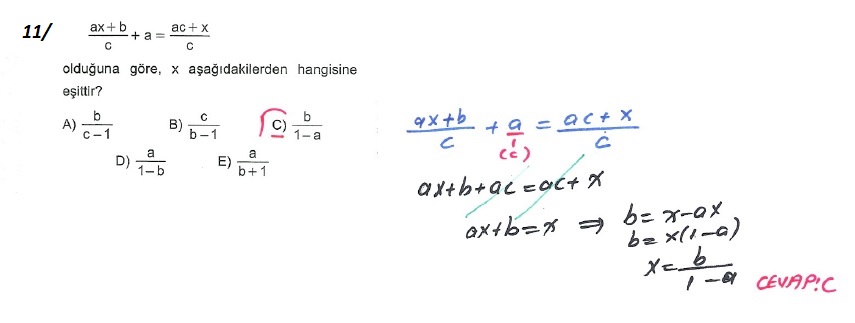 11/ (ax+b)/c + a = (ac+x)/c
olduğuna göre, x aşağıdakilerden hangisine
eşittir?
A) b/(c−1) B) c/(b−1) C) b/(1−a)
D) a/(1−b) E) a/(b+1)
(ax+b)/c + a/1 = (ac+x)/c
(c)
ax+b+ac = ac+x
ax+b=x ⇒ b=x−ax
b=x(1−a)
x= b/(1−a)
CEVAP:C